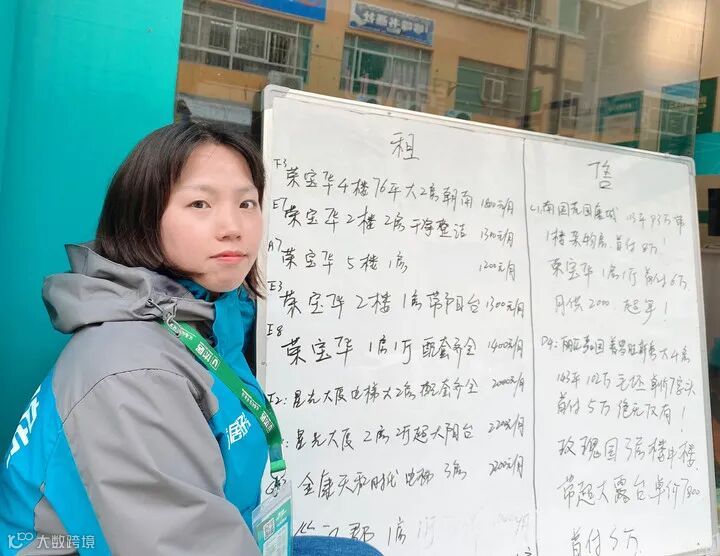 租
F3 荣宝华4楼76平大2房朝南 1800元/月
E7 荣宝华2楼2房干净整洁 1300元/月
A7 荣宝华5楼1房 1200元/月
E3 荣宝华2楼1房带阳台 1300元/月
E8 荣宝华1房1厅配套齐全 1400元/月
I2: 星光大厦电梯大2房配套齐全 2000元/月
星光大厦2房2厅超大阳台 2200元/月
金康天和时代电梯3房 2200元/月
郡1房1厅
售
1楼 首付8万!
荣宝华1房1厅首付6万
月供2000起
D4:
143平102万毛坯单价7字头
首付5万绝无仅有!
玫瑰园3房楼中楼
带超大露台单价7800
首付5万
大数跨境